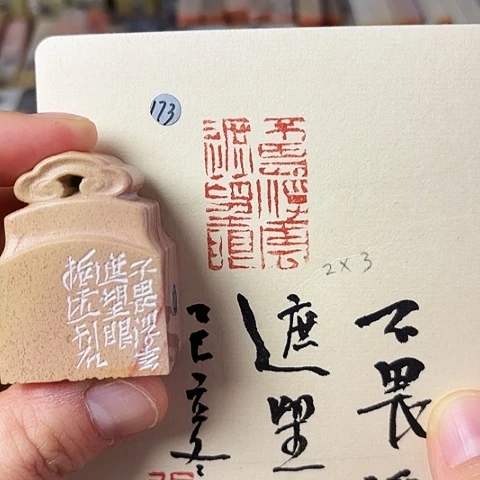 173
不畏浮雲
遮望眼
2×3
不畏浮云
遮望眼
不畏
遮望